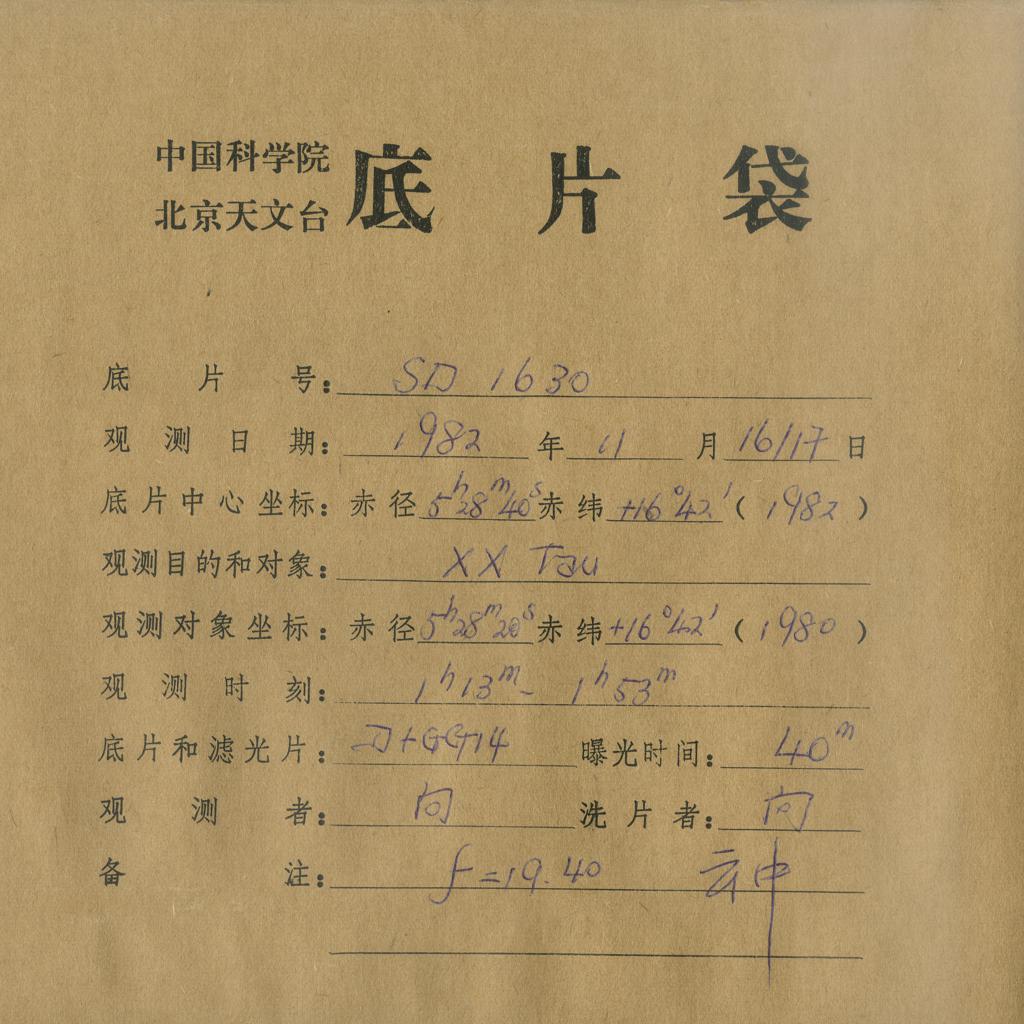 中国科学院
北京天文台
底片袋
底片号：SD 1630
观测日期：1982年11月16/17日
底片中心坐标：赤径5ʰ28ᵐ40ˢ赤纬+16°42′（1982）
观测目的和对象：XX Tau
观测对象坐标：赤径5ʰ28ᵐ20ˢ赤纬+16°42′（1980）
观测时刻：1ʰ13ᵐ- 1ʰ53ᵐ
底片和滤光片：D+GG14 曝光时间：40ᵐ
观测者：向 洗片者：向
备注：f=19.40 云中